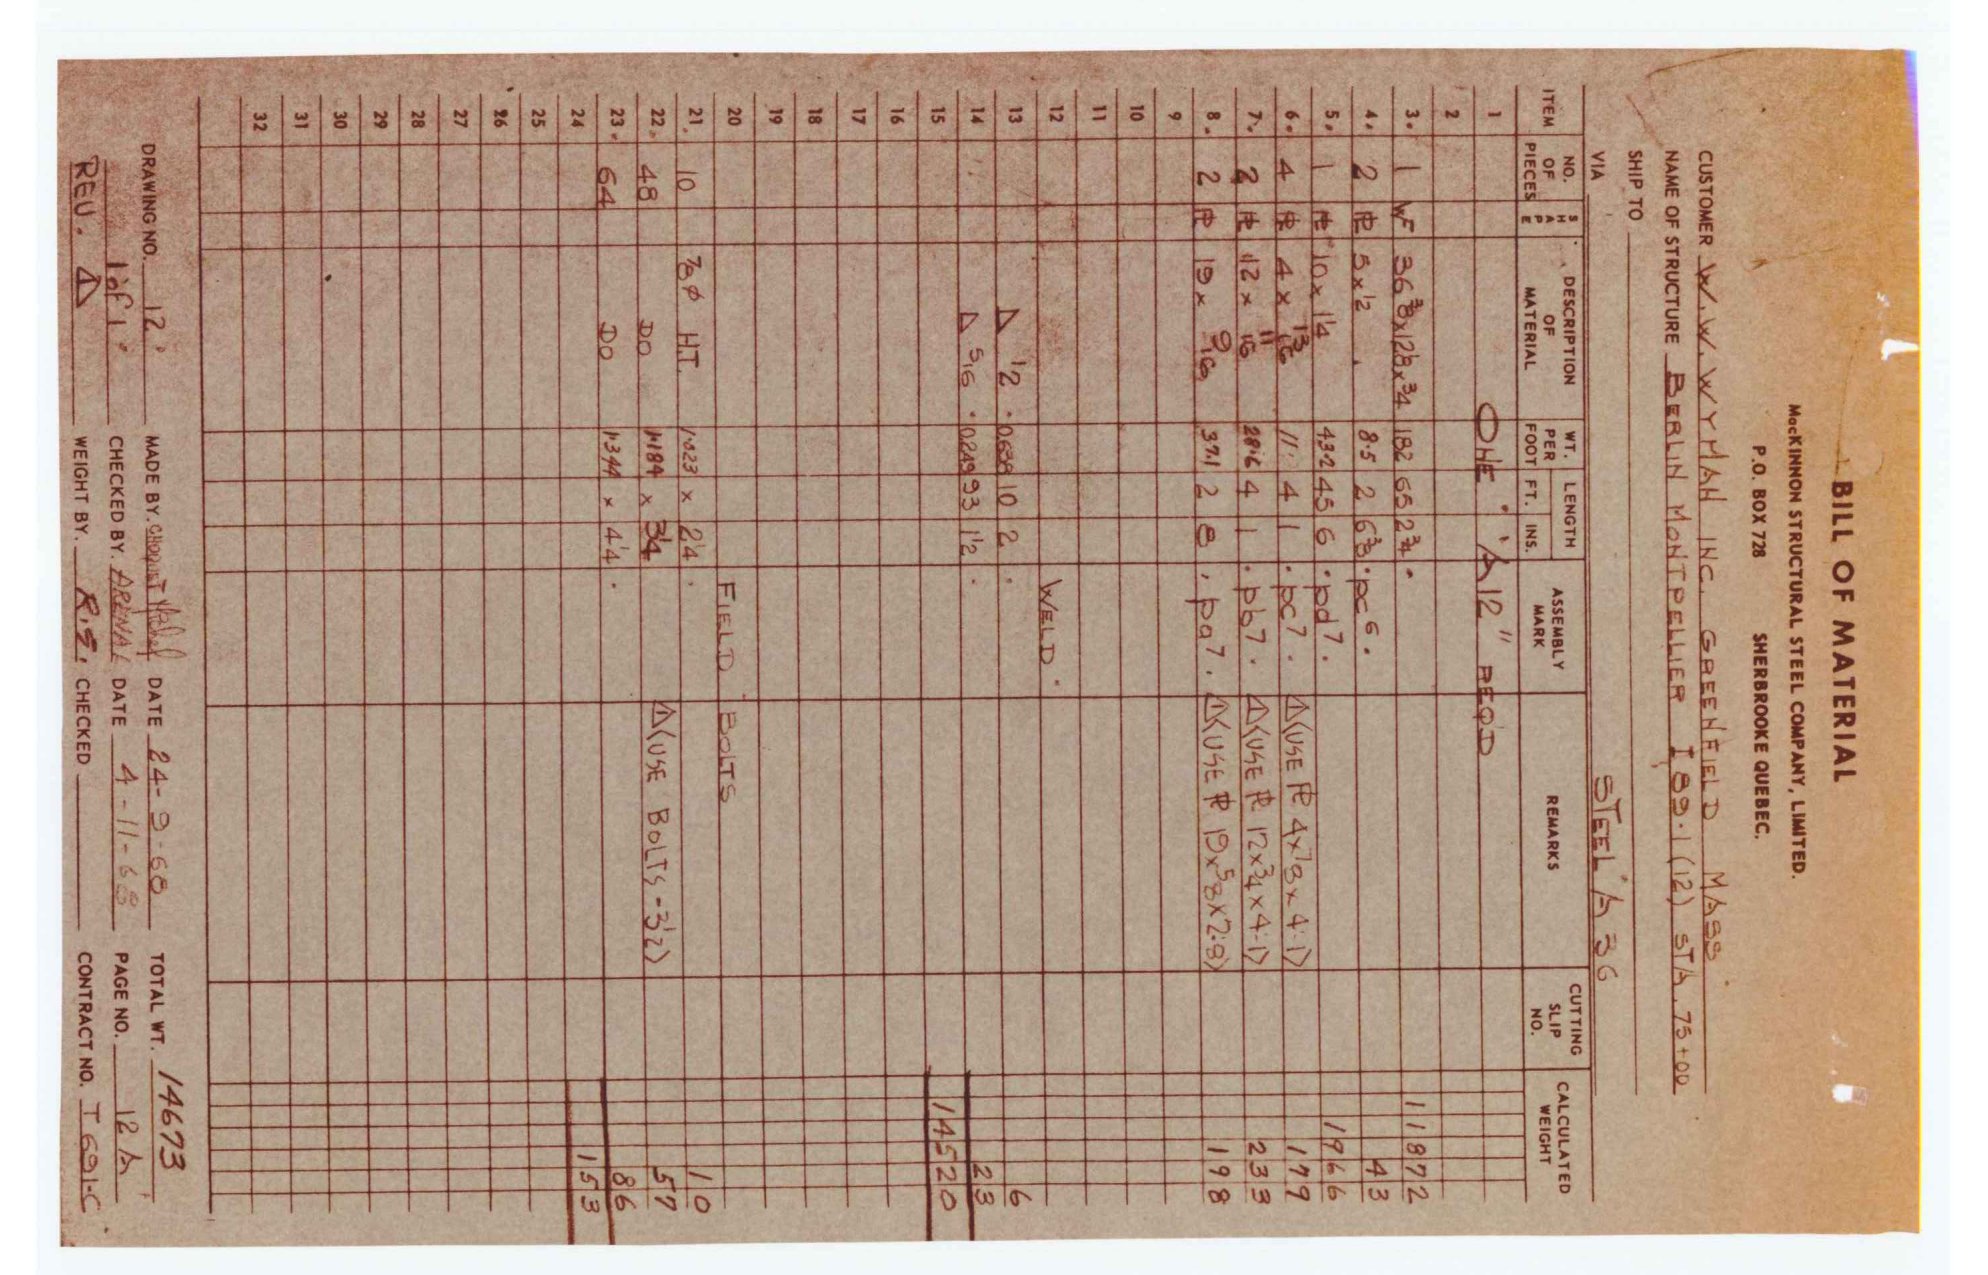 BILL OF MATERIAL
MacKINNON STRUCTURAL STEEL COMPANY, LIMITED.
P.O. BOX 728 SHERBROOKE QUEBEC.
CUSTOMER W.W. WYMAN INC. GREENFIELD MASS
NAME OF STRUCTURE BERLIN MONTPELLIER I 89-1(12) STA. 75+00
SHIP TO
VIA STEEL A36
ITEM NO. OF PIECES SHAPE DESCRIPTION OF MATERIAL WT. PER FOOT LENGTH FT. INS. ASSEMBLY MARK REMARKS CUTTING SLIP NO. CALCULATED WEIGHT
1 ONE "A12" REQ'D
2
3. 1 WF 36 3/8 x 12 1/8 x 3/4 182 65 2 3/4 11872
4. 2 PL 5 x 1/2 8.5 2 6 3/8 pc6. 43
5. 1 PL 10 x 1 1/4 43.2 45 6 pd7. 1966
6. 4 PL 4 x 13/16 11. 4 1 pc7. △1 (USE PL 4 x 7/8 x 4-1) 179
7. 2 PL 12 x 11/16 28.6 4 1 pb7. △1 (USE PL 12 x 3/4 x 4-1) 233
8. 2 PL 19 x 9/16 37.1 2 8 pa7. △1 (USE PL 19 x 5/8 x 2-8) 198
9
10
11
12 WELD.
13 △ 1/2 .0638 10 2 6
14 △ 5/16 .0249 93 1 1/2 23
15 14520
16
17
18
19
20 FIELD BOLTS
21. 10 7/8 φ H.T. 1.023 x 2 1/4 10
22. 48 DO 1.184 x 3 1/4 △1 (USE BOLTS - 3 1/2) 57
23. 64 DO 1.344 x 4 1/4 86
24 153
25
26
27
28
29
30
31
32
DRAWING NO. 12 MADE BY. CHOQUET DATE 24-9-68 TOTAL WT. 14673
1 of 1 CHECKED BY. DATE 4-11-68 PAGE NO. 12A
REV. △1 WEIGHT BY. CHECKED CONTRACT NO. T 691-C